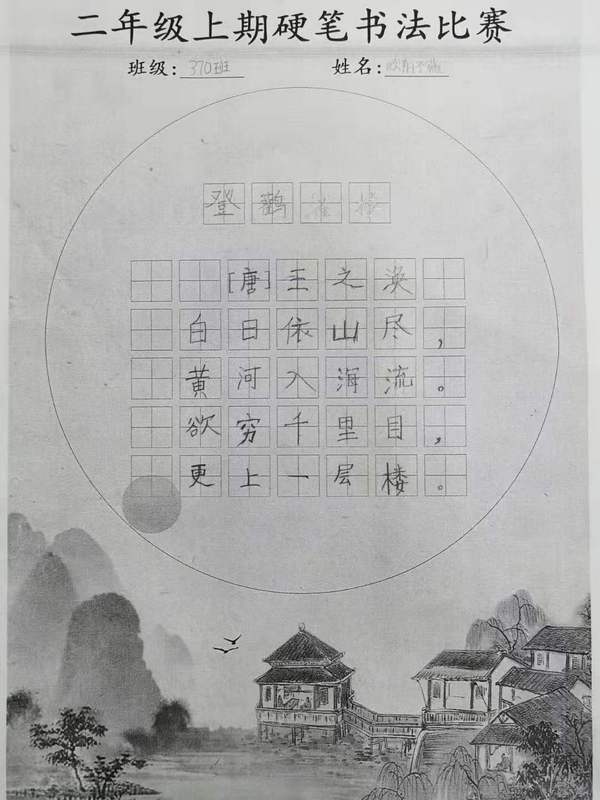 二年级上期硬笔书法比赛
班级：370班 姓名：
登鹳雀楼
[唐]王之涣
白日依山尽，
黄河入海流。
欲穷千里目，
更上一层楼。